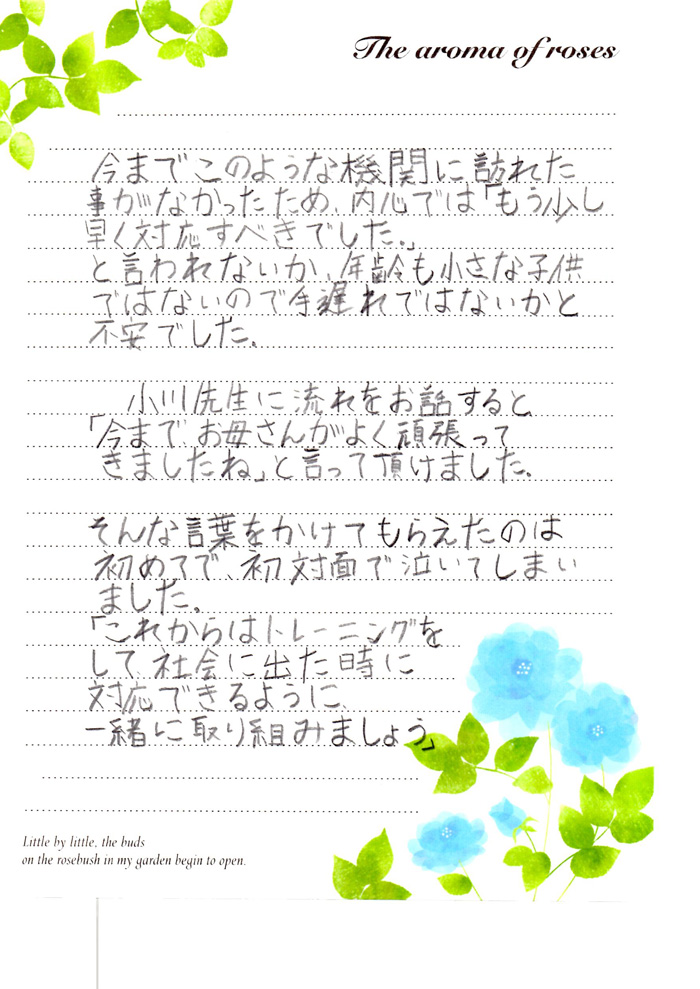 The aroma of roses
今までこのような機関に訪れた
事がなかったため、内心では「もう少し
早く対応すべきでした。」
と言われないか、年齢も小さな子供
ではないので手遅れではないかと
不安でした。
小川先生に流れをお話すると
「今までお母さんがよく頑張って
きましたね」と言って頂けました。
そんな言葉をかけてもらえたのは
初めてで、初対面で泣いてしまい
ました。
「これからはトレーニングを
して社会に出た時に
対応できるように、
一緒に取り組みましょう」
Little by little, the buds
on the rosebush in my garden begin to open.